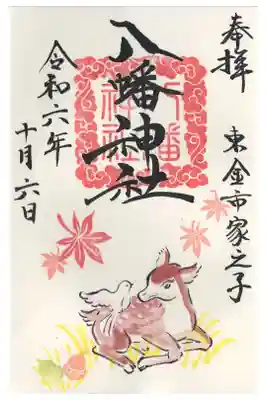 奉拝
東金市家之子
八幡神社
令和六年
十月六日
八幡
神社